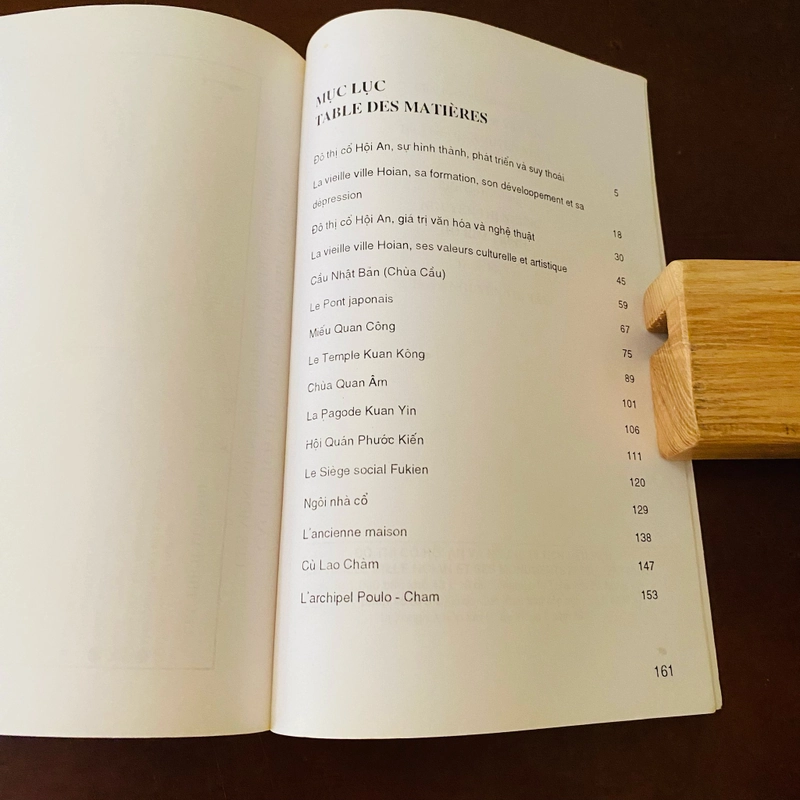 MỤC LỤC
TABLE DES MATIÈRES
Đô thị cổ Hội An, sự hình thành, phát triển và suy thoái 5
La vieille ville Hoian, sa formation, son déveloopement et sa
dépression 18
Đô thị cổ Hội An, giá trị văn hóa và nghệ thuật 30
La vieille ville Hoian, ses valeurs culturelle et artistique 45
Cầu Nhật Bản (Chùa Cầu) 59
Le Pont japonais 67
Miếu Quan Công 75
Le Temple Kuan Kông 89
Chùa Quan Âm 101
La Pagode Kuan Yin 106
Hội Quán Phước Kiến 111
Le Siège social Fukien 120
Ngôi nhà cổ 129
L'ancienne maison 138
Cù Lao Chàm 147
L'archipel Poulo - Cham 153
161